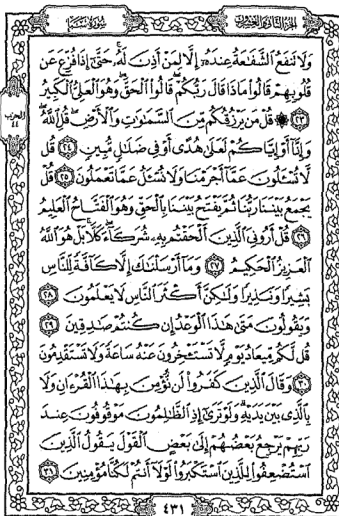 الجزء الثاني والعشرون
سورة سبإ
وَلَا تَنفَعُ الشَّفَاعَةُ عِندَهُ إِلَّا لِمَنْ أَذِنَ لَهُ حَتَّى إِذَا فُزِّعَ عَن
قُلُوبِهِمْ قَالُوا مَاذَا قَالَ رَبُّكُمْ قَالُوا الْحَقَّ وَهُوَ الْعَلِيُّ الْكَبِيرُ
٢٣ قُلْ مَن يَرْزُقُكُم مِّنَ السَّمَاوَاتِ وَالْأَرْضِ قُلِ اللَّهُ
وَإِنَّا أَوْ إِيَّاكُمْ لَعَلَى هُدًى أَوْ فِي ضَلَالٍ مُّبِينٍ ٢٤ قُل
لَّا تُسْأَلُونَ عَمَّا أَجْرَمْنَا وَلَا نُسْأَلُ عَمَّا تَعْمَلُونَ ٢٥ قُلْ
يَجْمَعُ بَيْنَنَا رَبُّنَا ثُمَّ يَفْتَحُ بَيْنَنَا بِالْحَقِّ وَهُوَ الْفَتَّاحُ الْعَلِيمُ
٢٦ قُلْ أَرُونِيَ الَّذِينَ أَلْحَقْتُم بِهِ شُرَكَاءَ كَلَّا بَلْ هُوَ اللَّهُ
الْعَزِيزُ الْحَكِيمُ ٢٧ وَمَا أَرْسَلْنَاكَ إِلَّا كَافَّةً لِّلنَّاسِ
بَشِيرًا وَنَذِيرًا وَلَكِنَّ أَكْثَرَ النَّاسِ لَا يَعْلَمُونَ ٢٨
وَيَقُولُونَ مَتَى هَذَا الْوَعْدُ إِن كُنتُمْ صَادِقِينَ ٢٩
قُل لَّكُم مِّيعَادُ يَوْمٍ لَّا تَسْتَأْخِرُونَ عَنْهُ سَاعَةً وَلَا تَسْتَقْدِمُونَ
٣٠ وَقَالَ الَّذِينَ كَفَرُوا لَن نُّؤْمِنَ بِهَذَا الْقُرْآنِ وَلَا
بِالَّذِي بَيْنَ يَدَيْهِ وَلَوْ تَرَى إِذِ الظَّالِمُونَ مَوْقُوفُونَ عِندَ
رَبِّهِمْ يَرْجِعُ بَعْضُهُمْ إِلَى بَعْضٍ الْقَوْلَ يَقُولُ الَّذِينَ
اسْتُضْعِفُوا لِلَّذِينَ اسْتَكْبَرُوا لَوْلَا أَنتُمْ لَكُنَّا مُؤْمِنِينَ ٣١
الحزب
٤٤
٤٣١